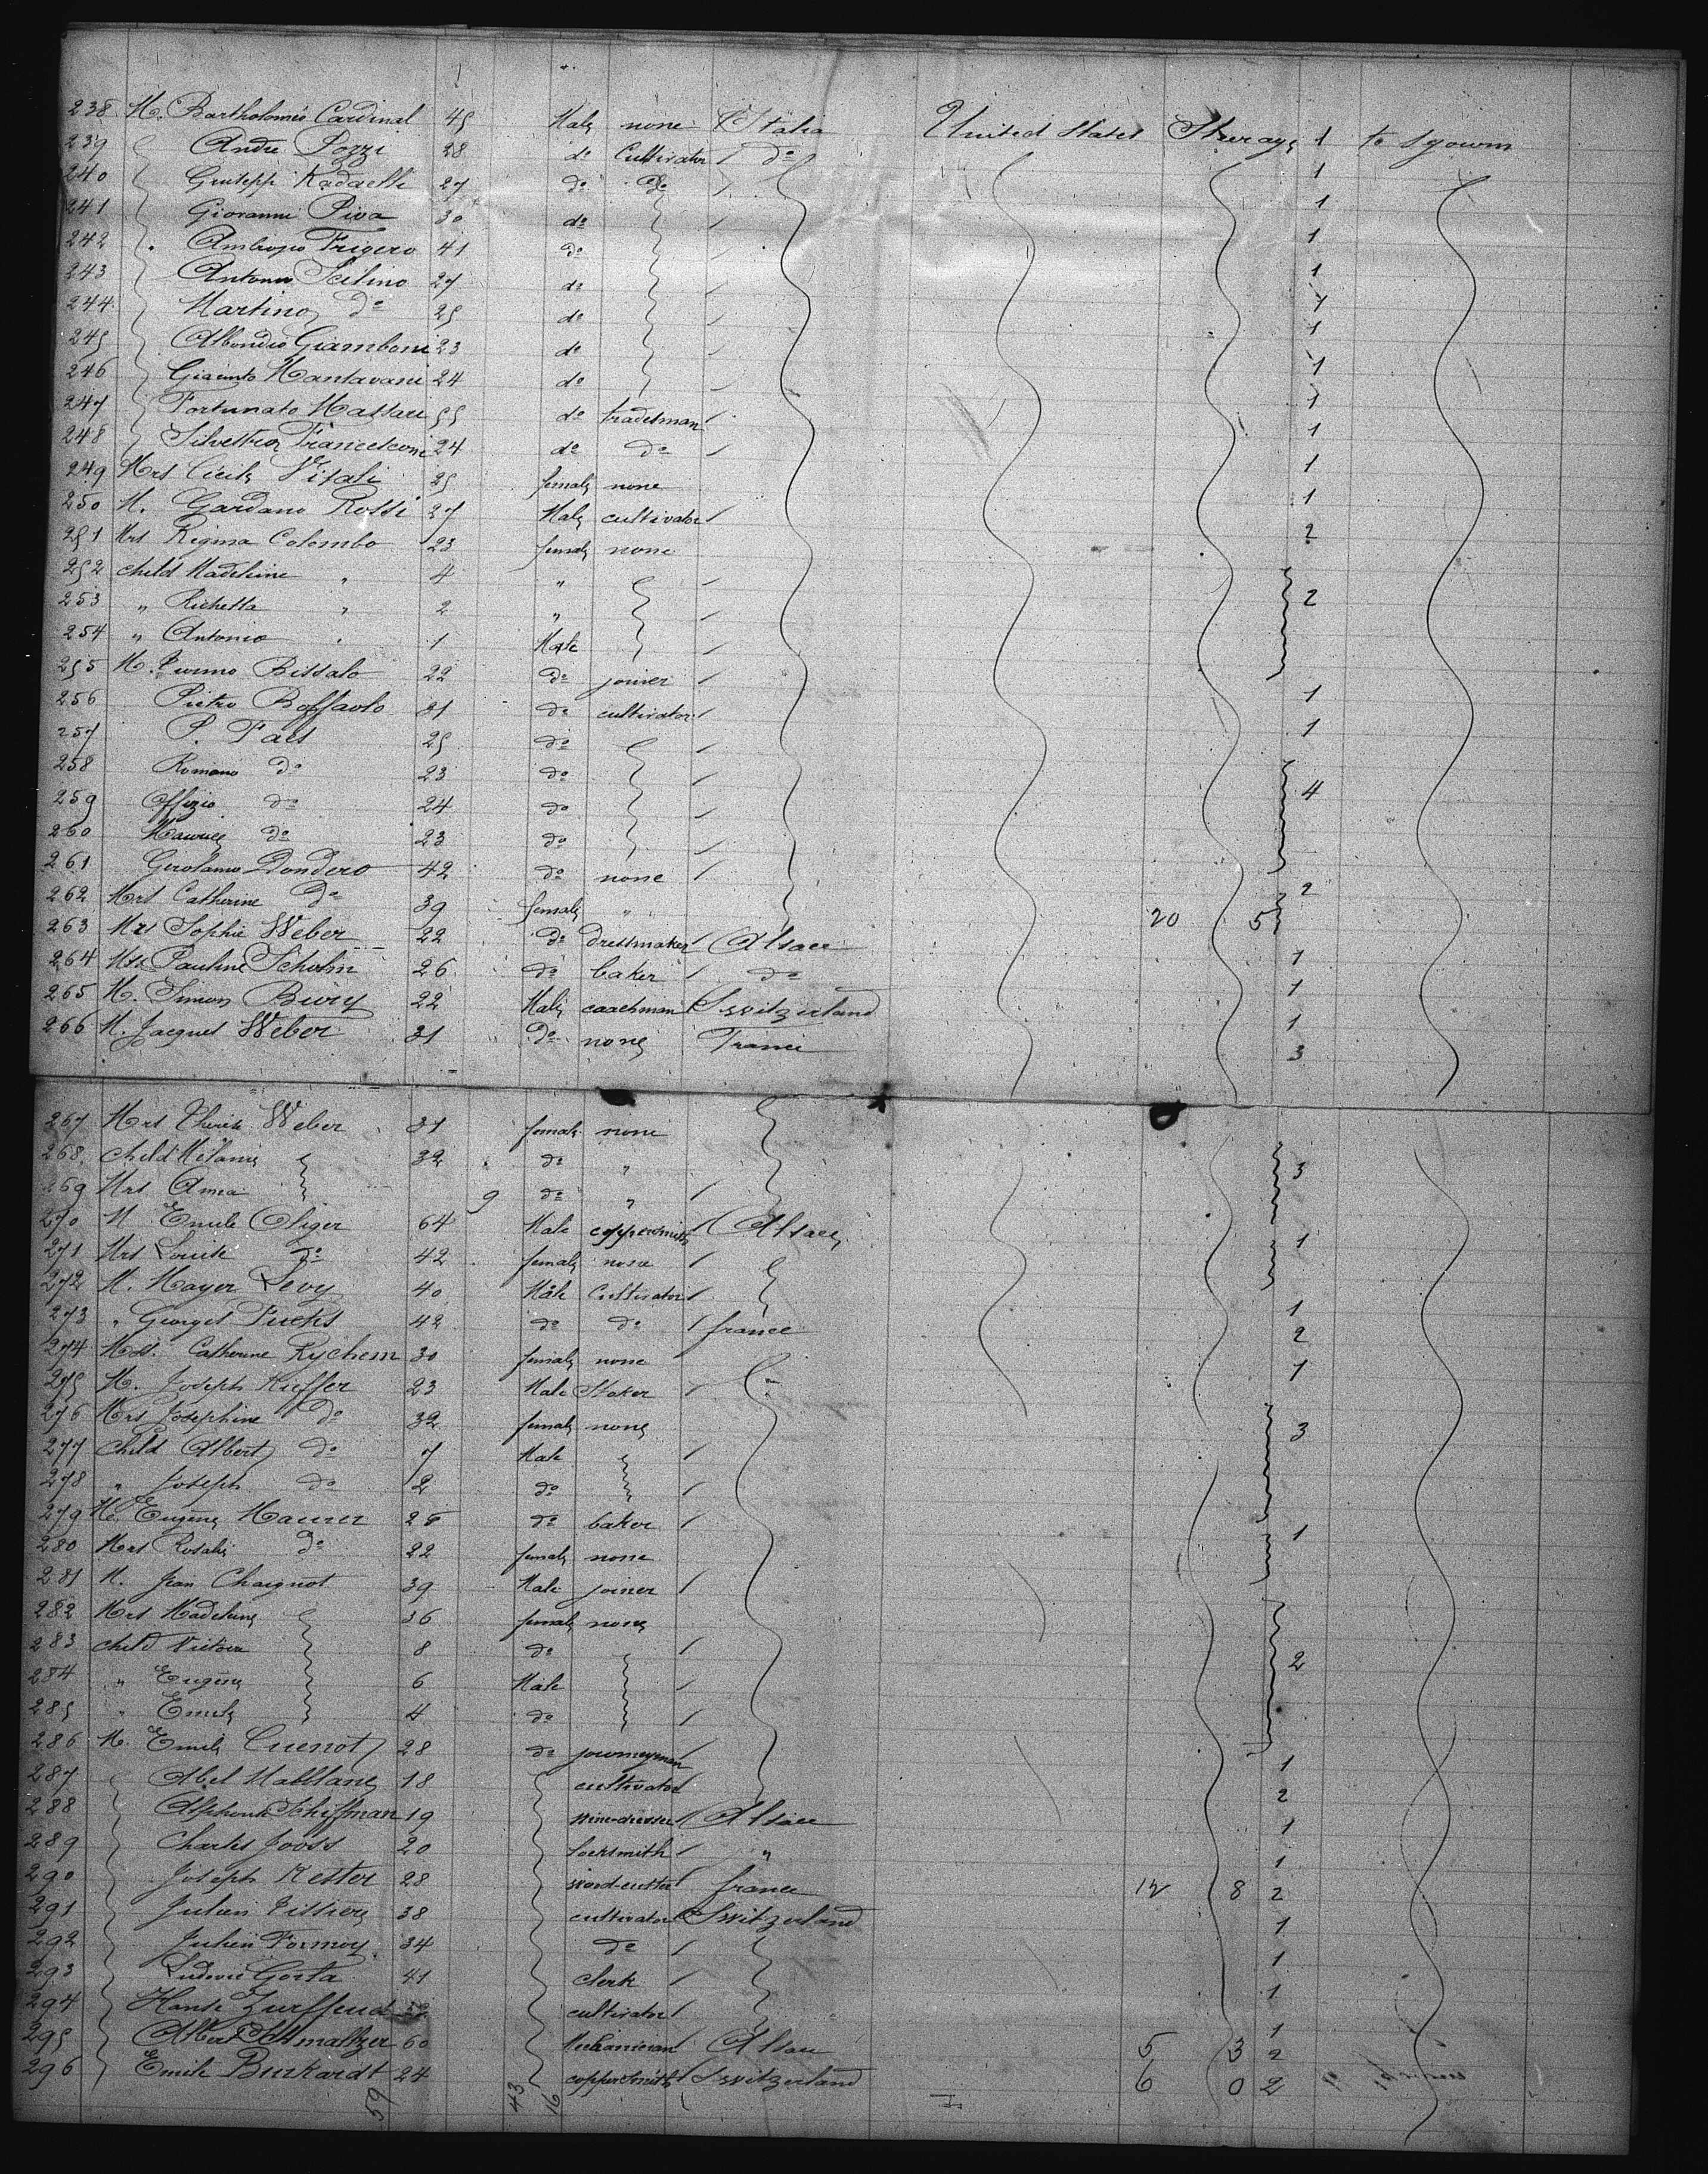 238 M. Bartholomeo Cardinal 45 Male none Italia United States Steerage 1 to sjourn
239 Andre Pozzi 28 do Cultivator do 1
240 Giuseppi Radaelli 27 do do 1
241 Giovanni Piva 30 do 1
242 Ambrogio Frigero 41 do 1
243 Antonio 27 do 1
244 Martino do 25 do 1
245 Abbondio Giamboni 23 do 1
246 Giacinto Mantavani 24 do 1
247 Fortunato Massari 55 do tradesman 1
248 Silvestro Francesconi 24 do do 1
249 Mrs Cicile Vitali 25 female none 1
250 M. Gardano Rossi 27 Male cultivator 1
251 Mrs Regina Colombo 23 female none 2
252 child Madeleine " 4 "
253 " Richetta " 2 " 2
254 " Antonio " 1 Male
255 M. Bissalo 22 do joiner
256 Pietro Boffaolo 21 do cultivator 1
257 P. Faes 25 do 1
258 Romano do 23 do
259 Offizio do 24 do 4
260 Maurice do 23 do
261 Gerolamo Dondero 42 do none
262 Mrs Catherine do 39 female " 2
263 Mrs Sophie Weber 22 do dressmaker Alsace 20 5
264 Mss Pauline Scholin 26 do baker do 1
265 M. Simon Bury 22 Male coachman Switzerland 1
266 M. Jacques Weber 31 do none France 1
3
267 Mrs Therese Weber 31 female none
268 child Melanie 32 do " 3
269 Mrs Anna 9 do "
270 M Emile Oliger 64 Male coppersmith Alsace
271 Mrs Louise do 42 female none 1
272 M. Mayer Levy 40 Male Cultivator
273 " Georges Fuchs 42 do do france 1
274 Mss. Catherine Rychem 30 female none 2
275 M. Joseph Kieffer 23 Male Stoker 1
276 Mrs Josephine do 32 female none
277 child Albert do 7 Male 3
278 " Joseph do 2 do
279 M. Eugene Maurer 28 do baker
280 Mrs Rosalie do 22 female none 1
281 M. Jean Chaignot 39 Male joiner
282 Mrs Madeleine 36 female none
283 child Victoire 8 do
284 " Eugene 6 Male 2
285 " Emile 4 do
286 M. Emile Cuenot 28 do journeyman
287 Abel 18 cultivator 1
288 Alphonse Schiffman 19 wine-dresser Alsace 2
289 Charles Jooss 20 locksmith " 1
290 Joseph Kester 28 wood-cutter france 12 8 1
291 Julien Tissiere 38 cultivator Switzerland 2
292 Julien Formoy 34 do 1
293 Ludovic Gorta 41 clerk 1
294 Hanse cultivator 1
295 Albert Schmaltzer 60 Mechanician Alsace 5 3 1
296 Emile Burkardt 24 coppersmith Switzerland 6 0 2
2
59 43 16